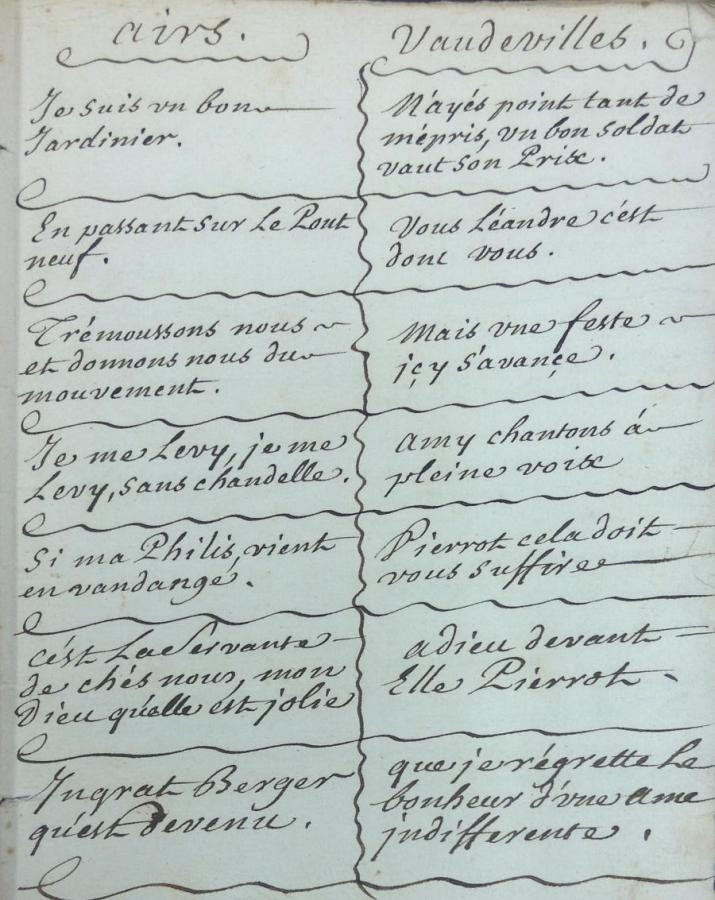 airs.
Vaudevilles.
Je suis vn bon
Jardinier.
N'ayés point tant de
mépris, vn bon soldat
vaut son Prix.
En passant sur Le Pont
neuf.
Vous Léandre c'ést
donc vous.
Trémoussons nous
et donnons nous du
mouvement.
Mais vne feste
içy s'avançe.
Je me Levy, je me
Levy, sans chandelle.
amy chantons á
pleine voix
Si ma Philis, vient
en vandange.
Pierrot cela doit
vous suffire
c'ést La Servante
de chés nous, mon
Dieu qu'elle est jolie
adieu devant
Elle Pierrot
Ingrat Berger
qu'est devenu.
que je régrette Le
bonheur d'vne ame
indifferente.